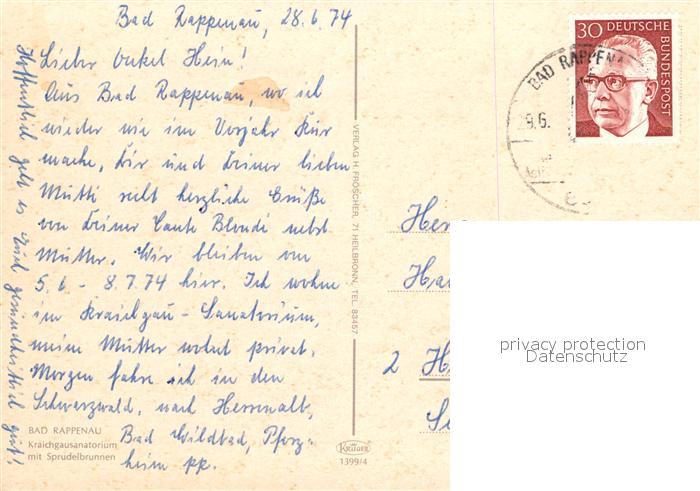 Bad Rappenau, 28.6.74
Lieber Onkel Hein!
Aus Bad Rappenau, wo ich
wieder wie im Vorjahr Kur
mache, Dir und Deiner lieben
Mutti recht herzliche Grüße
von Deiner Tante Blondi nebst
Mutter. Wir bleiben vom
5.6 - 8.7.74 hier. Ich wohne
im Kraichgau-Sanatorium,
meine Mutter wohnt privat.
Morgen fahre ich in den
Schwarzwald, nach Herrenalb,
Bad Wildbad, Pforz-
heim pp.
Hoffentlich geht es Euch gesundheitlich gut!
BAD RAPPENAU
Kraichgausanatorium
mit Sprudelbrunnen
VERLAG H. FRÖSCHER, 71 HEILBRONN, TEL. 83457
KRÜGER
1399/4
30 DEUTSCHE
BUNDESPOST
BAD RAPPENA
9.6.
Her
Ha
2 H
privacy protection
Datenschutz